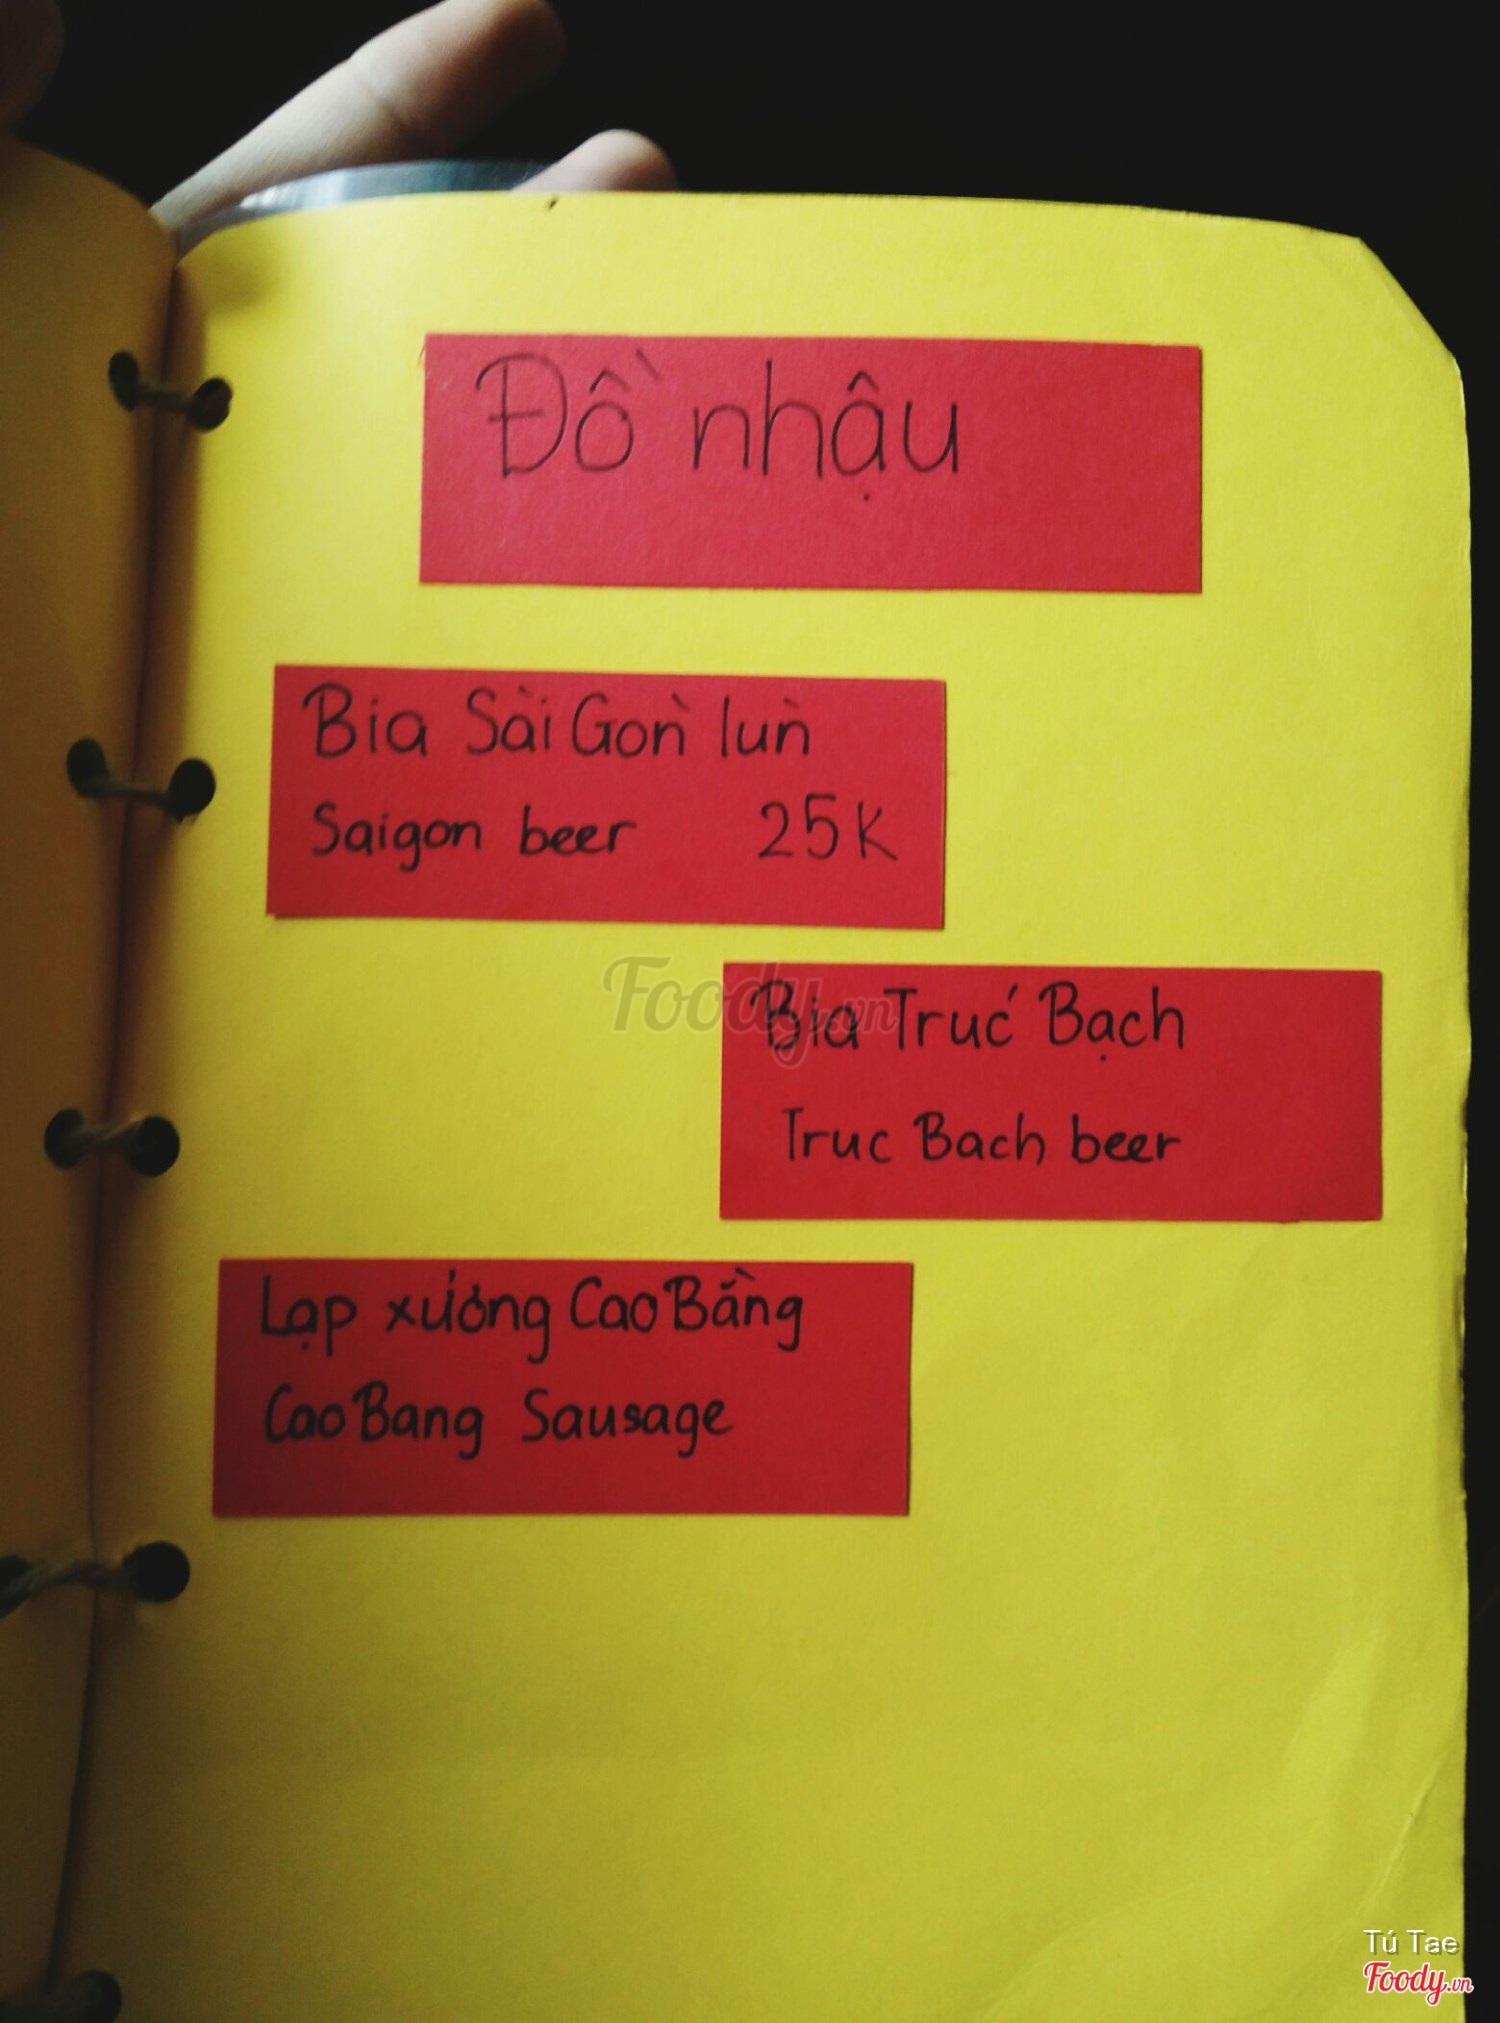 Đồ nhậu
Bia Sài Gòn lùn
Saigon beer 25K
Foody.vn
Bia Trúc Bạch
Truc Bach beer
Lạp xưởng Cao Bằng
Cao Bang Sausage
Tú Tae
Foody.vn